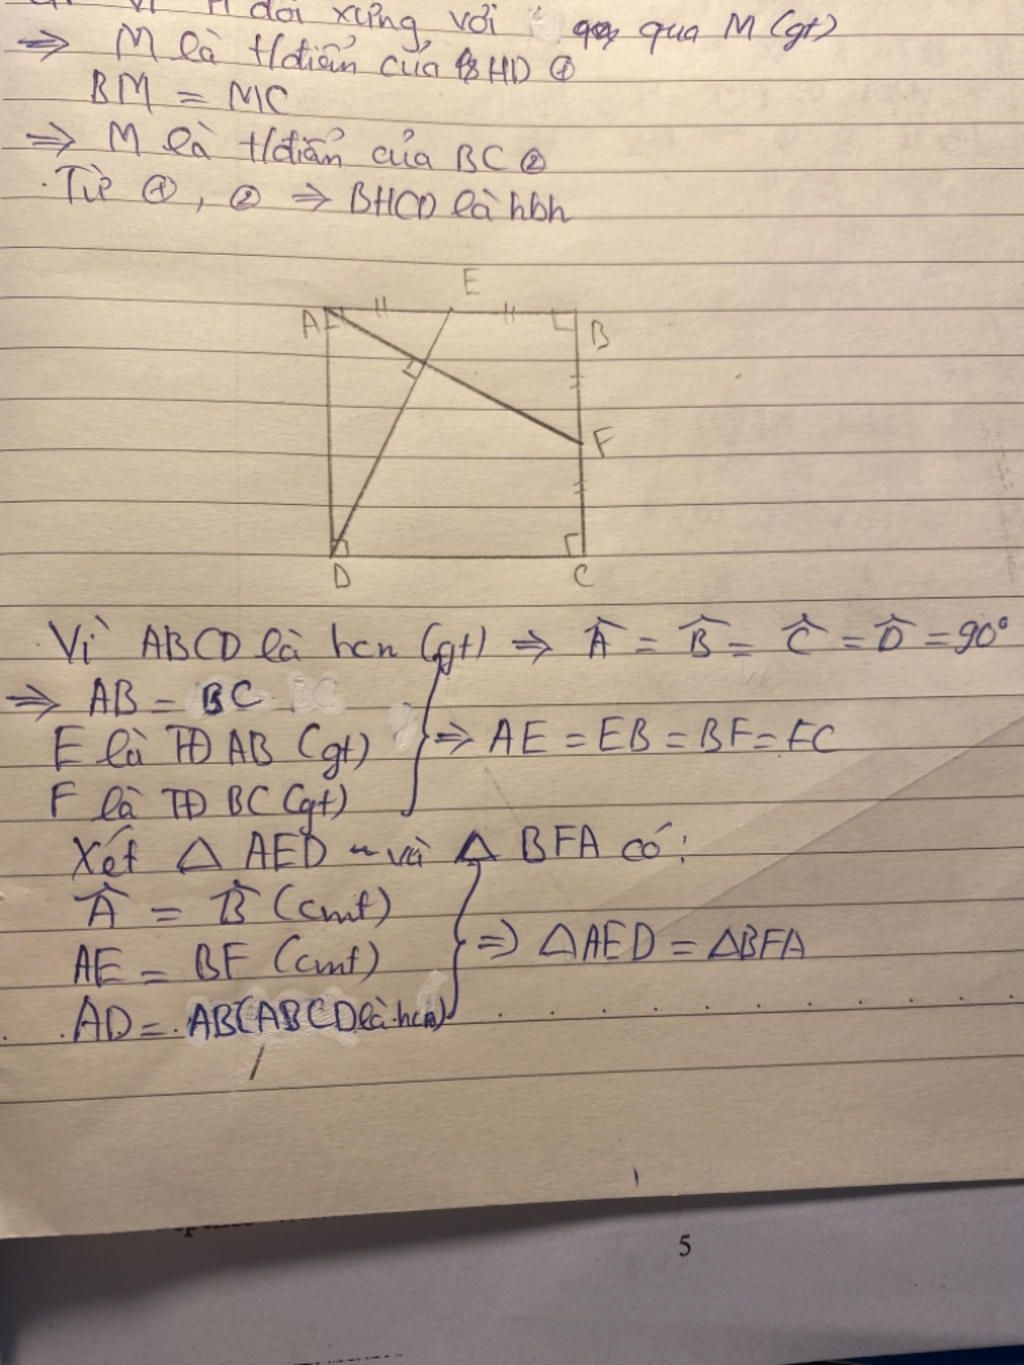 Vì H đối xứng với qua M (gt)
⇒ M là t/điểm của HD ①
BM = MC
⇒ M là t/điểm của BC ②
Từ ①, ② ⇒ BHCD là hbh
E
A
B
F
D
C
Vì ABCD là hcn (gt) ⇒ Â = B̂ = Ĉ = D̂ = 90°
⇒ AB = BC
E là TĐ AB (gt) ⇒ AE = EB = BF = FC
F là TĐ BC (gt)
Xét △ AED và △ BFA có:
Â = B̂ (cmt)
AE = BF (cmt) ⇒ △AED = △BFA
AD = AB (ABCD là hcn)
5